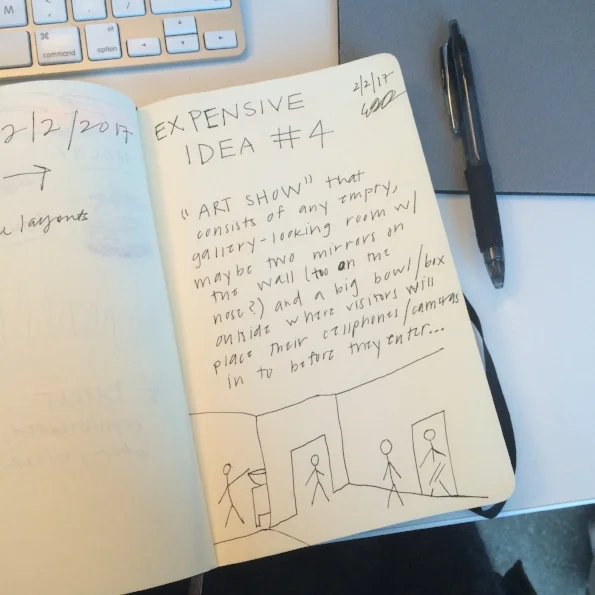 M
⌘
command
alt
option
2/2/2017
→
layouts
2/2/17
EXPENSIVE
IDEA #4
"ART SHOW" that
consists of any empty,
gallery-looking room w/
maybe two mirrors on
the wall (too on the
nose?) and a big bowl/box
outside where visitors will
place their cellphones/cameras
in to before they enter...